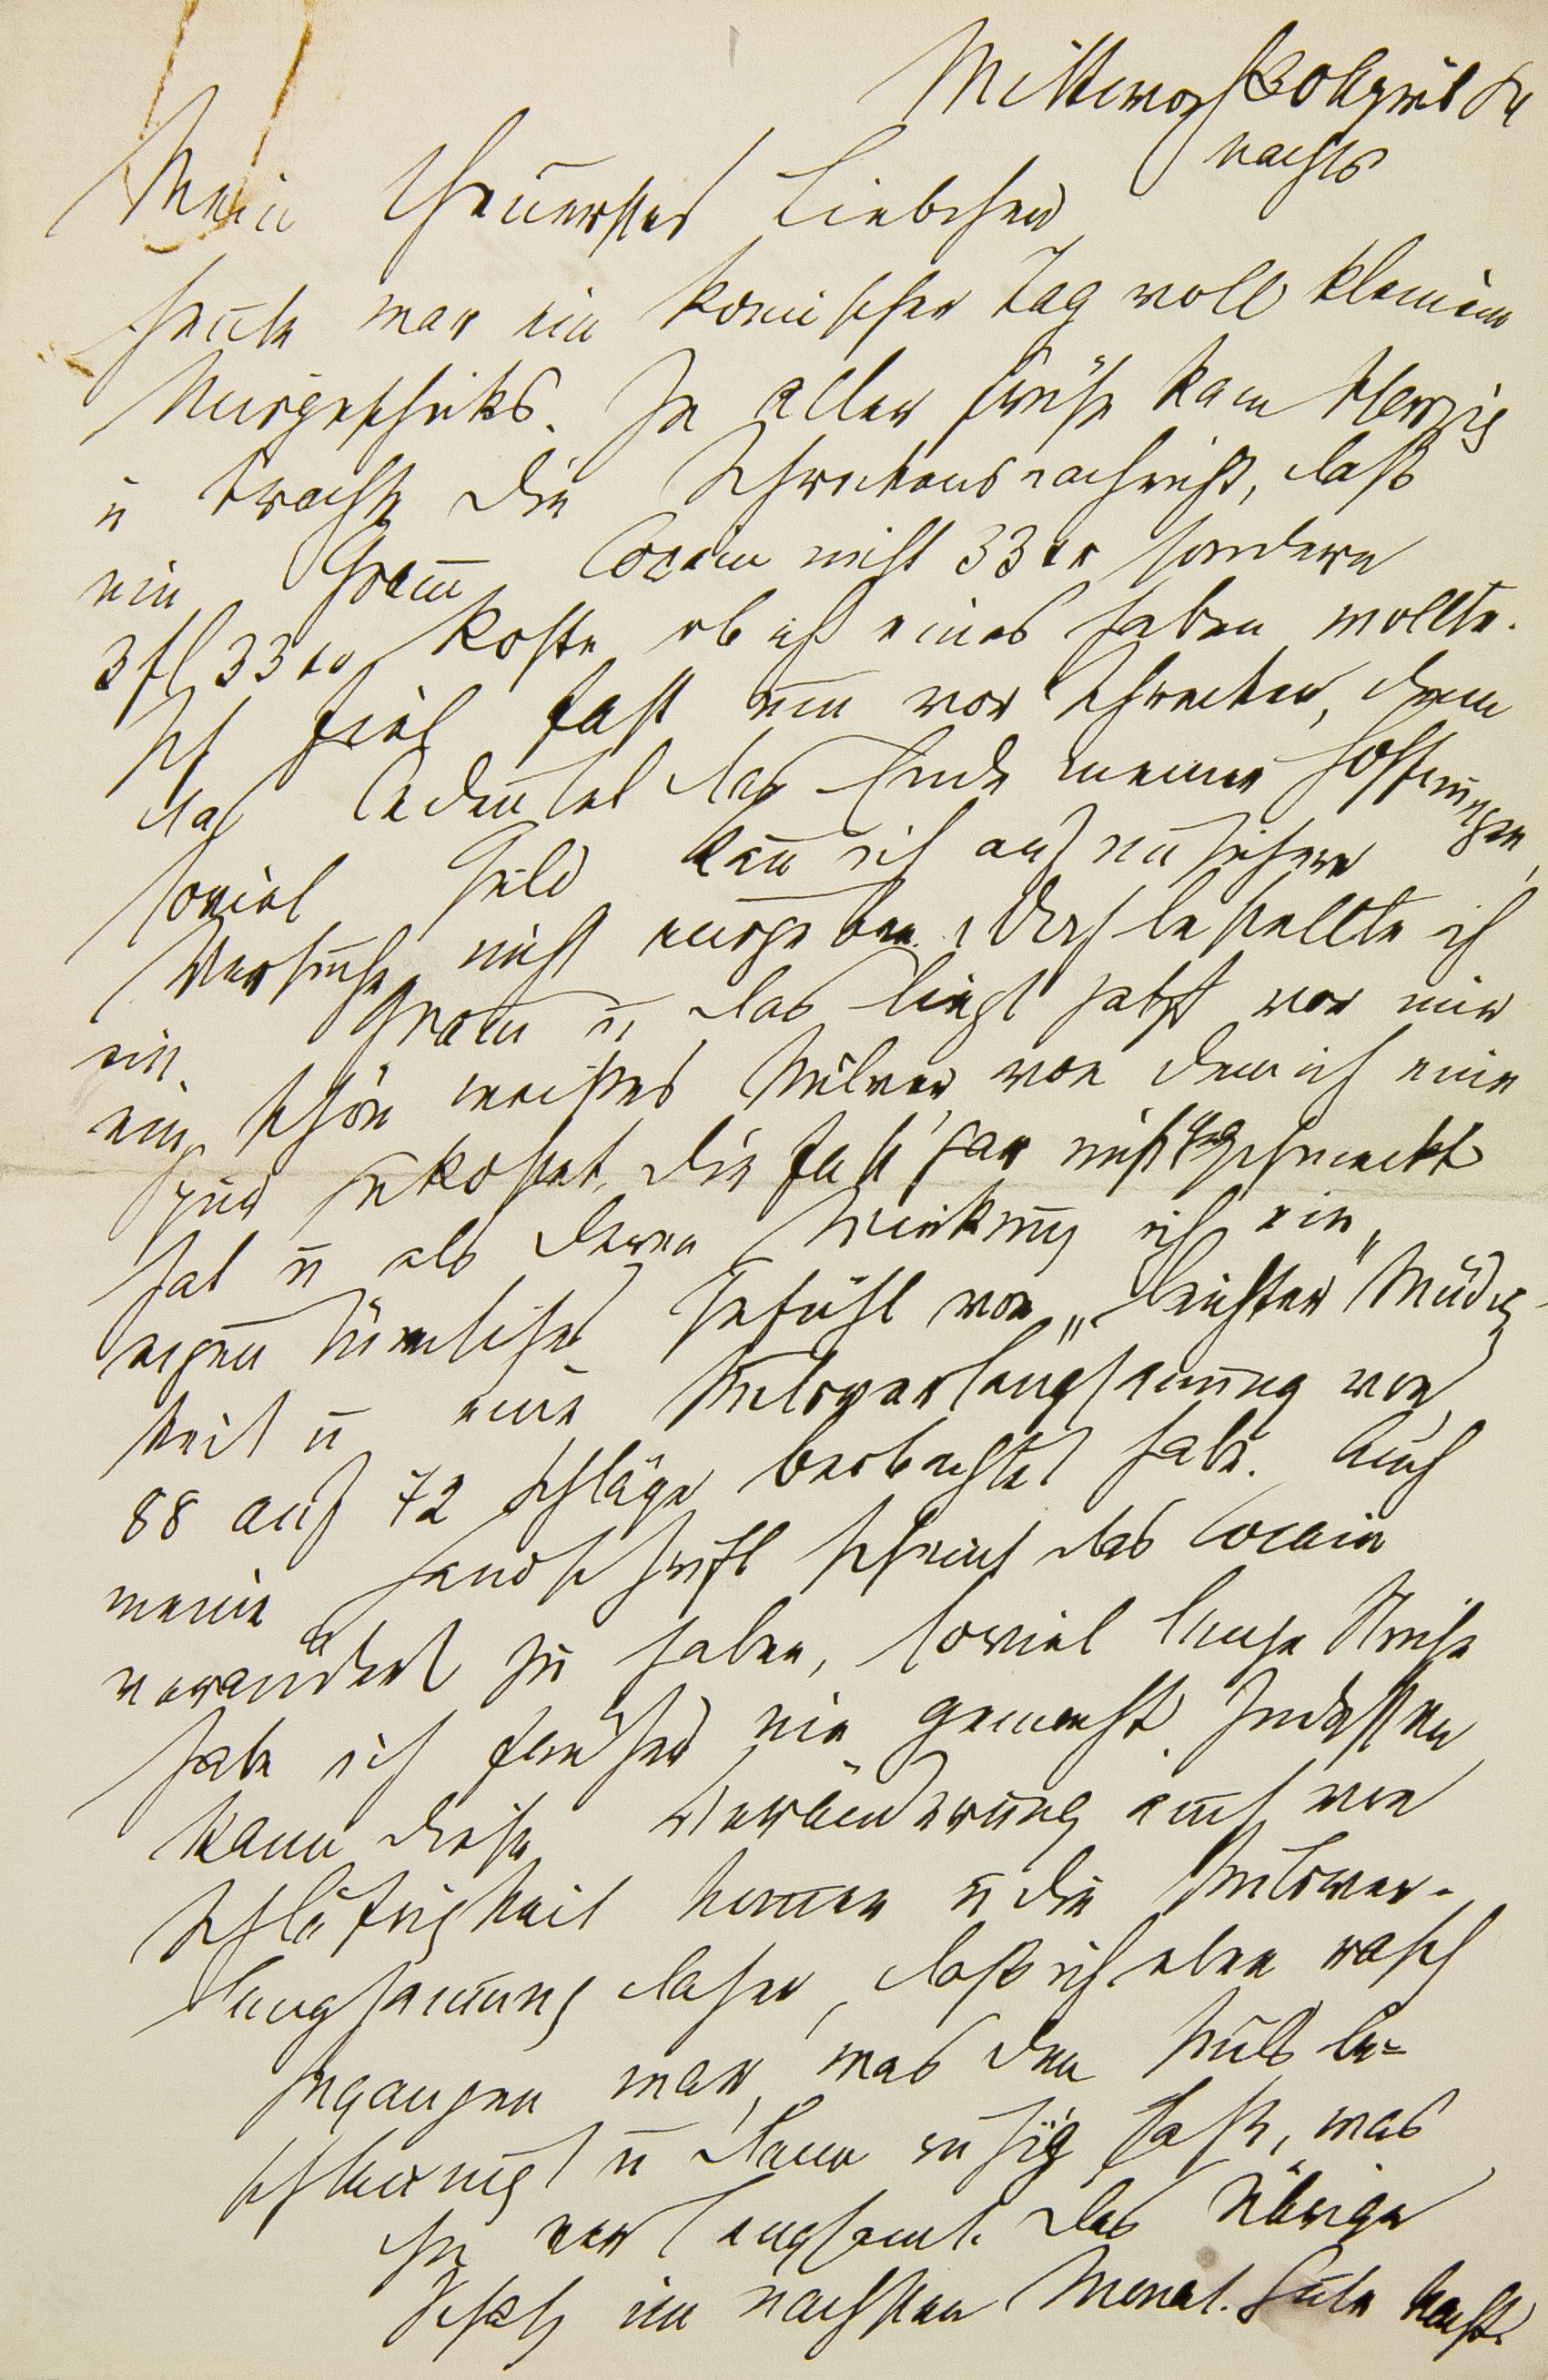 Mittwoch 30 April 84
nachts
Mein theuerstes Liebchen
Heute war ein komischer Tag voll kleinen
Mißgeschiks. In aller Frühe kam Herzig
u brachte die Schreckensnachricht, daß
ein Gram̅ Cocain nicht 33 kr sondern
3 fl 33 kr koste ob ich eines haben wollte.
Ich fiel fast um vor Schrecken, denn
das bedeutet das Ende meiner Hoffnungen,
soviel Geld kan̅ ich auf unsichere
Versuche nicht ausgeben. Doch bestellte ich
ein Gram̅ u. das liegt jetzt vor mir
ein schön weißes Pulver, von dem ich eine
gekostet, die fast gar nicht geschmeckt
hat u als deren Wirkung ich ein
eigentümliches Gefühl von „leichter" Müdig-
keit u eine Pulsverlangsamung von
88 auf 72 Schläge beobachtet habe. Auch
meine Handschrift scheint das Cocain
verändert zu haben, soviel lange Striche
habe ich früher nie gemacht. Indessen
kann diese Veränderung auch von
Schläfrigkeit kom̅en u die Pulsver-
langsamung daher, daß ich eben rasch
gegangen war, was den Puls be=
schleunigt u dann ruhig saß, was
ihn verlangsamt. Das Übrige
Schatz im nächsten Monat. Gute Nacht.